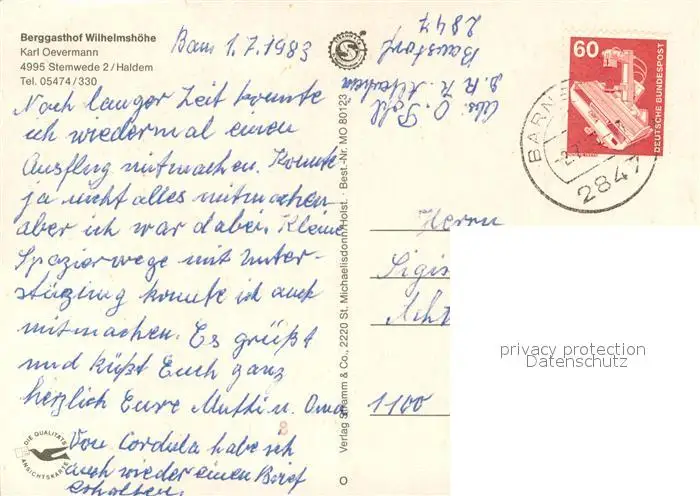 Berggasthof Wilhelmshöhe
Karl Oevermann
4995 Stemwede 2/Haldem
Tel. 05474/330
Barn. 1.7.1983
Nach langer Zeit konnte
ich wiedermal einen
Ausflug mitmachen. Konnte
ja nicht alles mitmachen
aber ich war dabei. Kleine
Spazierwege mit Unter-
stüzing konnte ich auch
mitmachen. Es grüßt
und küßt Euch ganz
herzlich Eure Mutti u. Oma
Von Cordula habe ich
auch wieder einen Brief
erhalten.
DIE QUALITÄTS
ANSICHTSKARTE
8
Verlag Schramm & Co., 2220 St. Michaelisdonn/Holst. · Best.-Nr. MO 80123
O
S
Abs. O. Poll
D.R.K. Altenheim
Barnstorf
2847
60
DEUTSCHE BUNDESPOST
BARN
2847
Herrn
Sigis
Acht
1100
privacy protection
Datenschutz